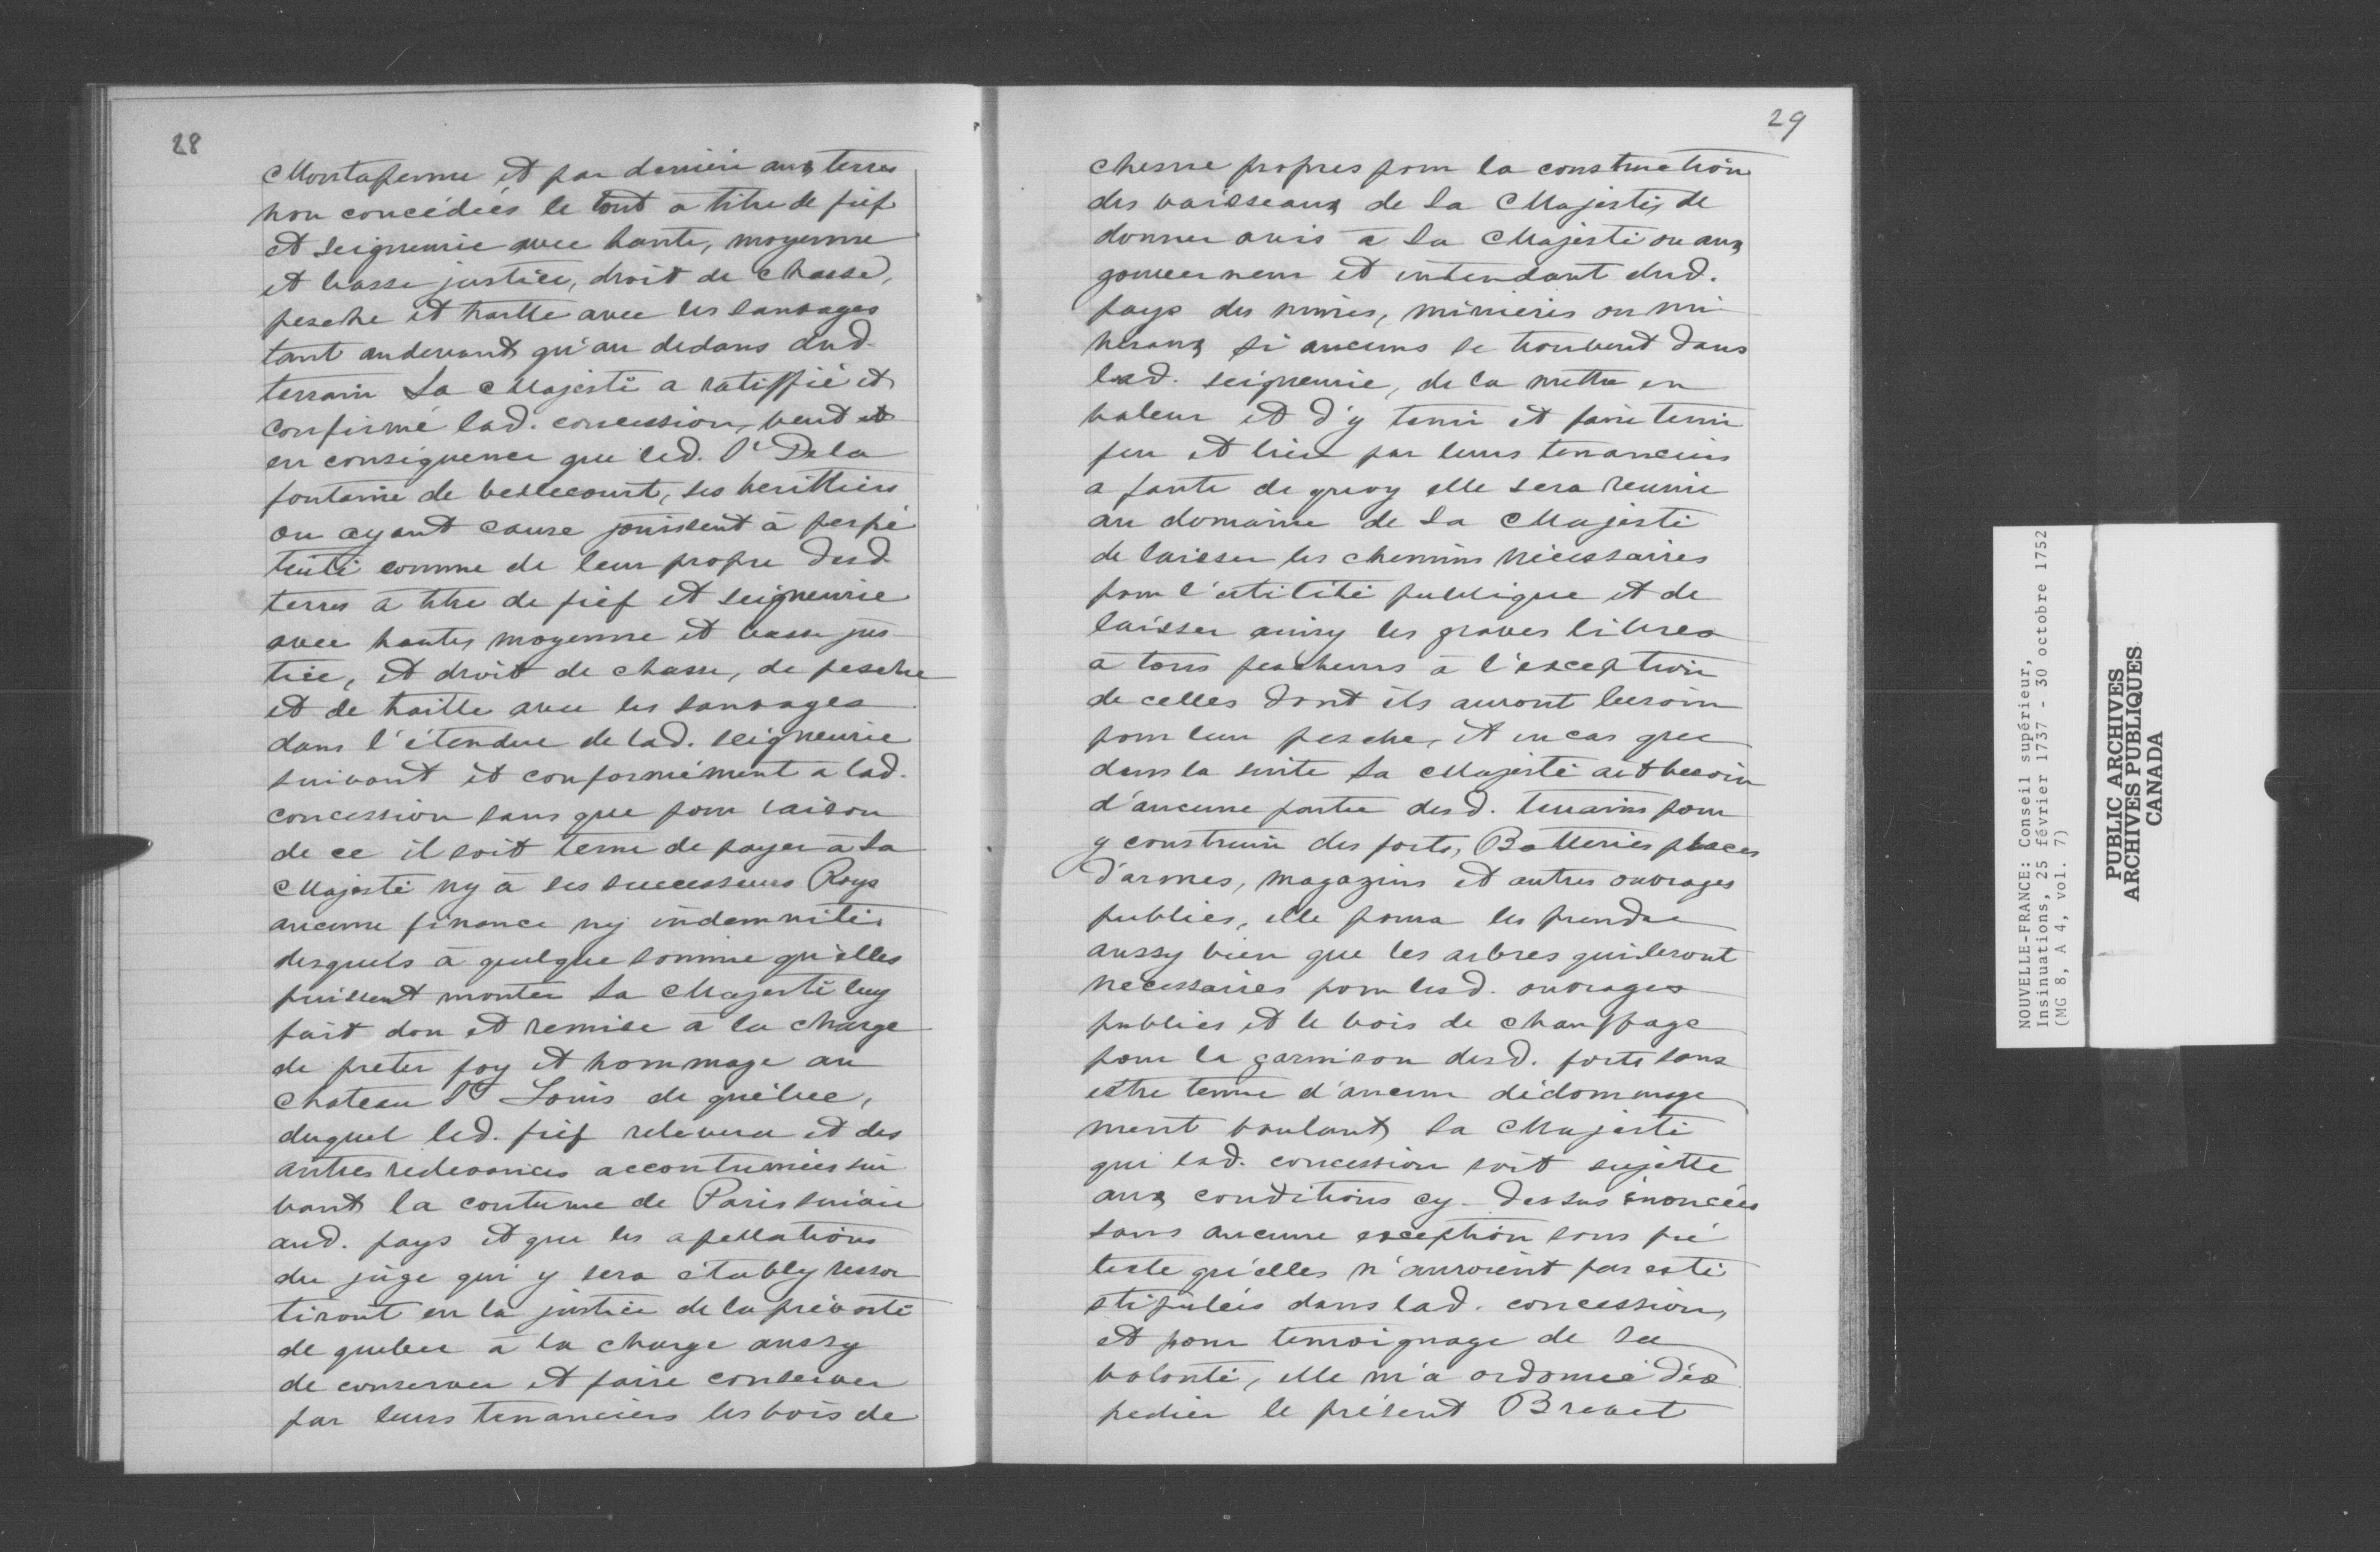 28
Montapeine et par derriere aux terres
non concédées le tout a titre de fief
et seigneurie avec haute, moyenne
et basse justice, droit de chasse,
pesche et traitte avec les sauvages
tant audevant qu'au dedans dud.
terrain Sa Majesté a ratiffié et
confirmé lad. concession, veut et
en consequence que led. Sr Dela
fontaine de bellecourt, ses herittiers
ou ayant cause jouissent à perpé
tuité comme de leur propre desd
terres a titre de fief et seigneurie
avec haute, moyenne et basse jus
tice, et droit de chasse, de pesche
et de traitte avec les sauvages
dans l'étendue de lad. seigneurie
suivant et conformément a lad.
concession sans que pour raison
de ce il soit tenu de payer à Sa
Majesté ny à ses successeurs Roys
aucune finance ny indemnité.
desquels à quelque somme qu'elles
puissent monter Sa Majesté luy
fait don et remise à la charge
de preter foy et hommage au
chateau St Louis de québec,
duquel led. fief relevera et des
autres redevances accoutumées sui
vant la coutume de Paris suivie
aud. pays et que les apellations
du juge qui y sera établÿ resso
tiront en la justice de la prévosté
de quebec à la charge aussy
de conserver et faire conserver
par leurs tenanciers les bois de
29
chesne propres pour la construction
des vaisseaux de Sa Majesté, de
donner avis a Sa Majesté ou aux
gouverneur et intendant dud.
pays des mines, minieres ou mi
neraux si aucuns se trouvent dans
lad. seigneurie, de la mettre en
valeur et d'y tenir et faire tenir
feu et lieu par leurs tenanciers
a faute de quoy elle sera reunie
au domaine de Sa Majesté
de laisser les chemins nécessaires
pour l'utilité publique et de
laisser aussy les graves libres
à tous pescheurs à l'exception
de celles dont ils auront besoin
pour leur pesche, et en cas que
dans la suite Sa Majesté ait besoin
d'aucune partie desd. terrains pour
y construire des forts, Batteries places
d'armes, magazins et autres ouvrages
publics, elle poura les prendre
aussy bien que les arbres qui seront
necessaires pour lesd. ouvrages
publics et le bois de chauffage
pour la garnison desd. forts sans
estre tenue d'aucun dédommage
ment voulant Sa Majesté
que lad. concession soit sujette
aux conditions cy-dessus énoncées
sans aucune exception sous pré
texte qu'elles n'auroient pas esté
stipulées dans lad. concession,
et pour temoignage de sa
volonté, elle m'a ordonné d'éx
pedier le présent Brevet
NOUVELLE-FRANCE: Conseil supérieur,
Insinuations, 25 février 1737 - 30 octobre 1752
(MG 8, A 4, vol. 7)
PUBLIC ARCHIVES
ARCHIVES PUBLIQUES
CANADA